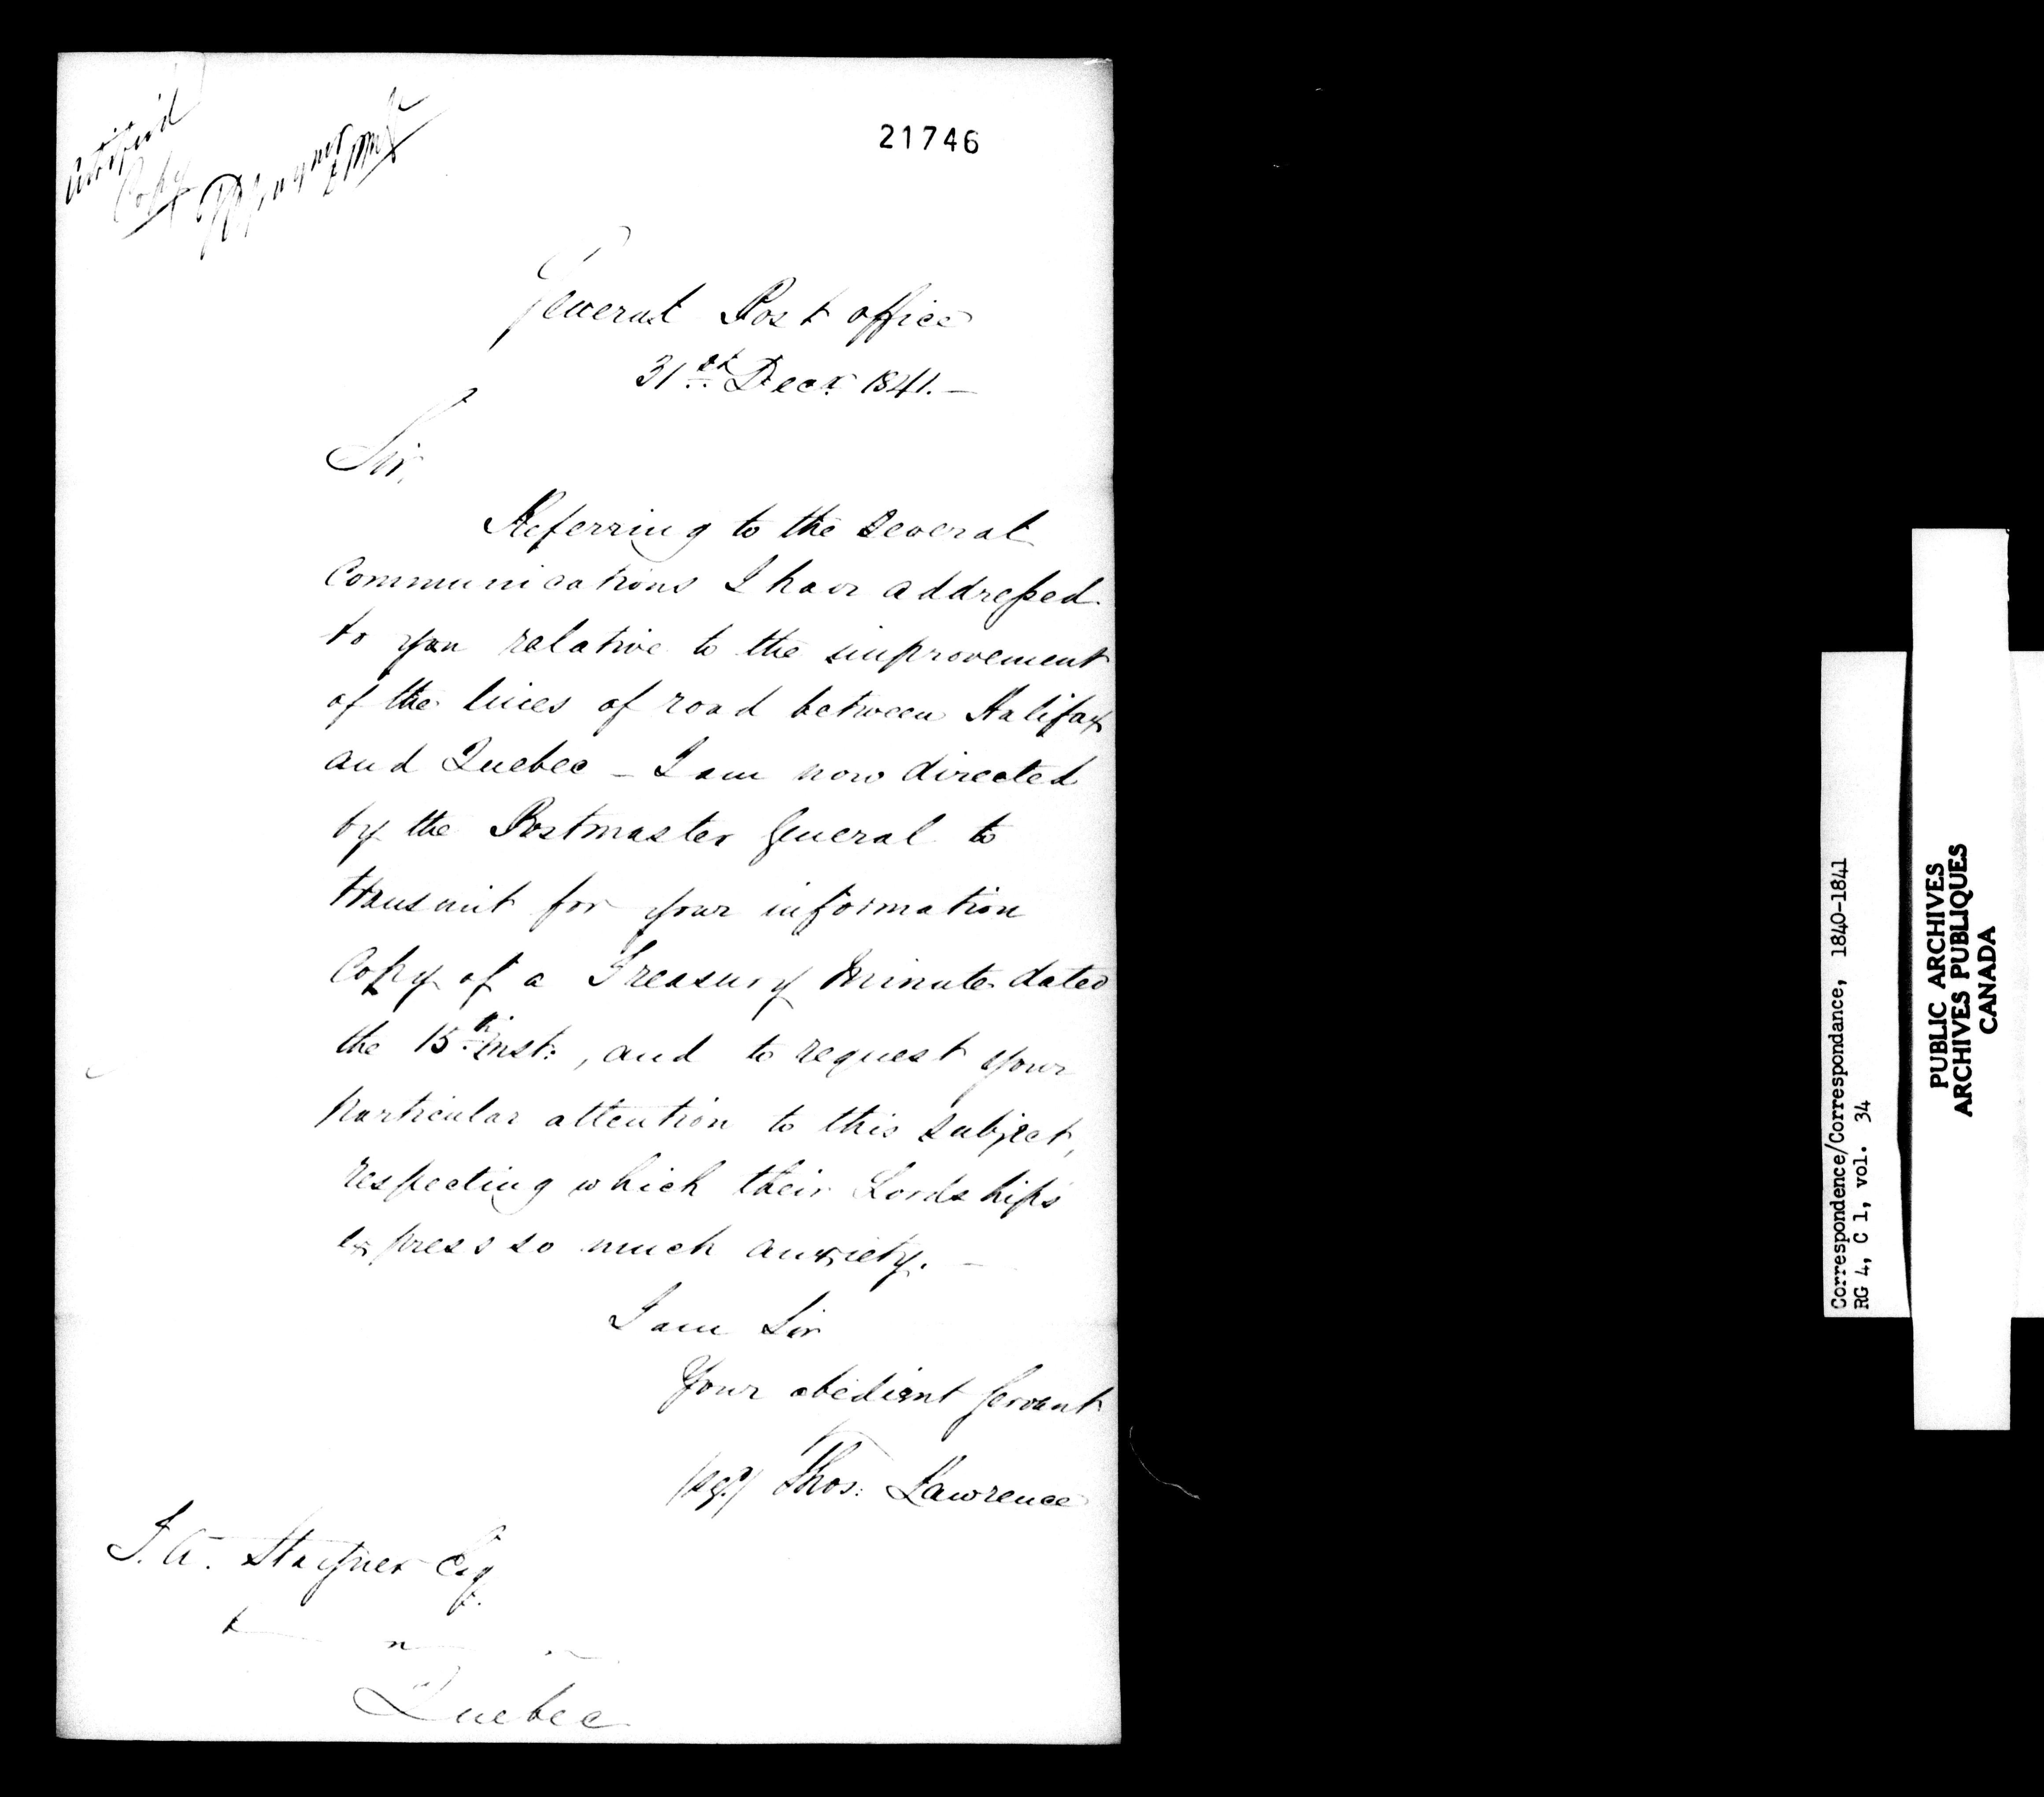 Certified
Copy
21746
General Post office
31st Decr. 1841. —
Sir,
Referring to the Several
Communications I have addressed
to you relative to the improvement
of the lines of road between Halifax
and Quebec — I am now directed
by the Postmaster General to
transmit for your information
Copy of a Treasury Minute dated
the 15th Inst:, and to request your
particular attention to this subject,
respecting which their Lordships
express so much anxiety. —
I am Sir
Your obedient Servant
(sgd) Thos: Lawrence
T. A. Stayner Esq.
Quebec
Correspondence/Correspondance, 1840-1841
RG 4, C 1, vol. 34
PUBLIC ARCHIVES
ARCHIVES PUBLIQUES
CANADA